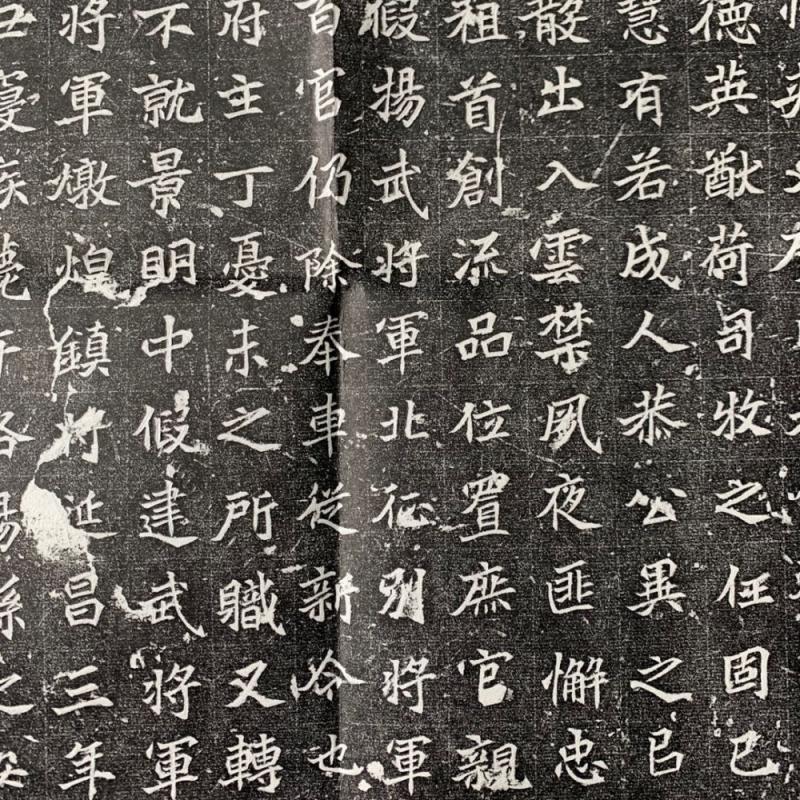 德英猷荷司牧之任固已
慧有若成人恭公異之已
散出入雲禁夙夜匪懈忠
祖首創流品位置庶官親
假揚武將軍北征別將軍
百官仍除奉車從新令也
府主丁憂未之所職又轉
不就景明中假建武將軍
將軍燉煌鎮將延昌三年